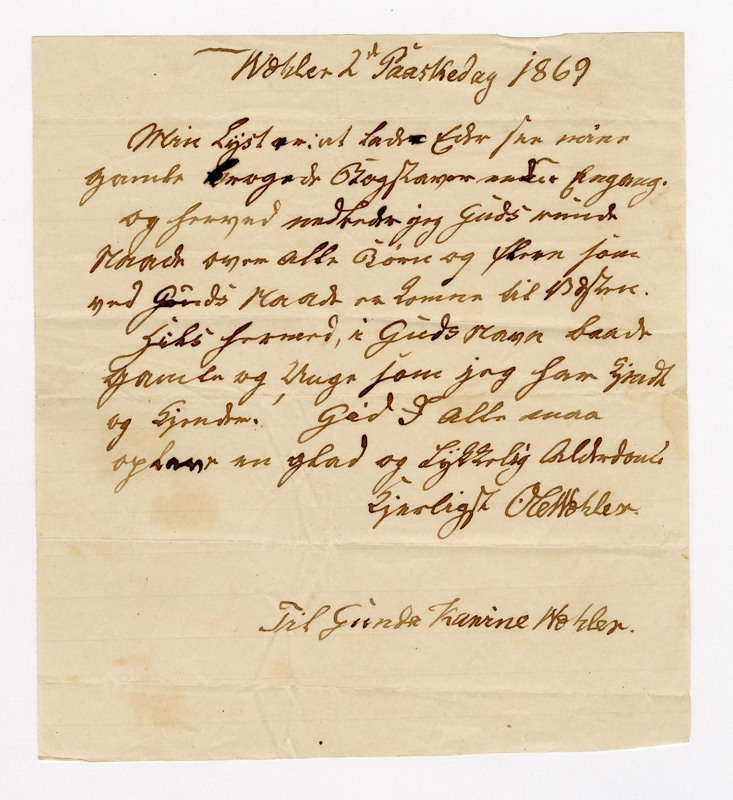 Wøhler 2de Paaskedag 1869
Min Lyst er: at lade Eder see mine
gamle krogede Bogstaver endnu Engang.
og herved nedbeder jeg Guds runde
Naade over Alle Børn og flere som
ved Guds Naade er komne til Vesten.
Hils hermed, i Guds Navn baade
Gamle og Unge som jeg har kjendt
og kjender. Gid I Alle maa
opleve en glad og Lykkelig Alderdom.
Kjerligst OCWøhler.
Til Gunda Karine Wøhler.